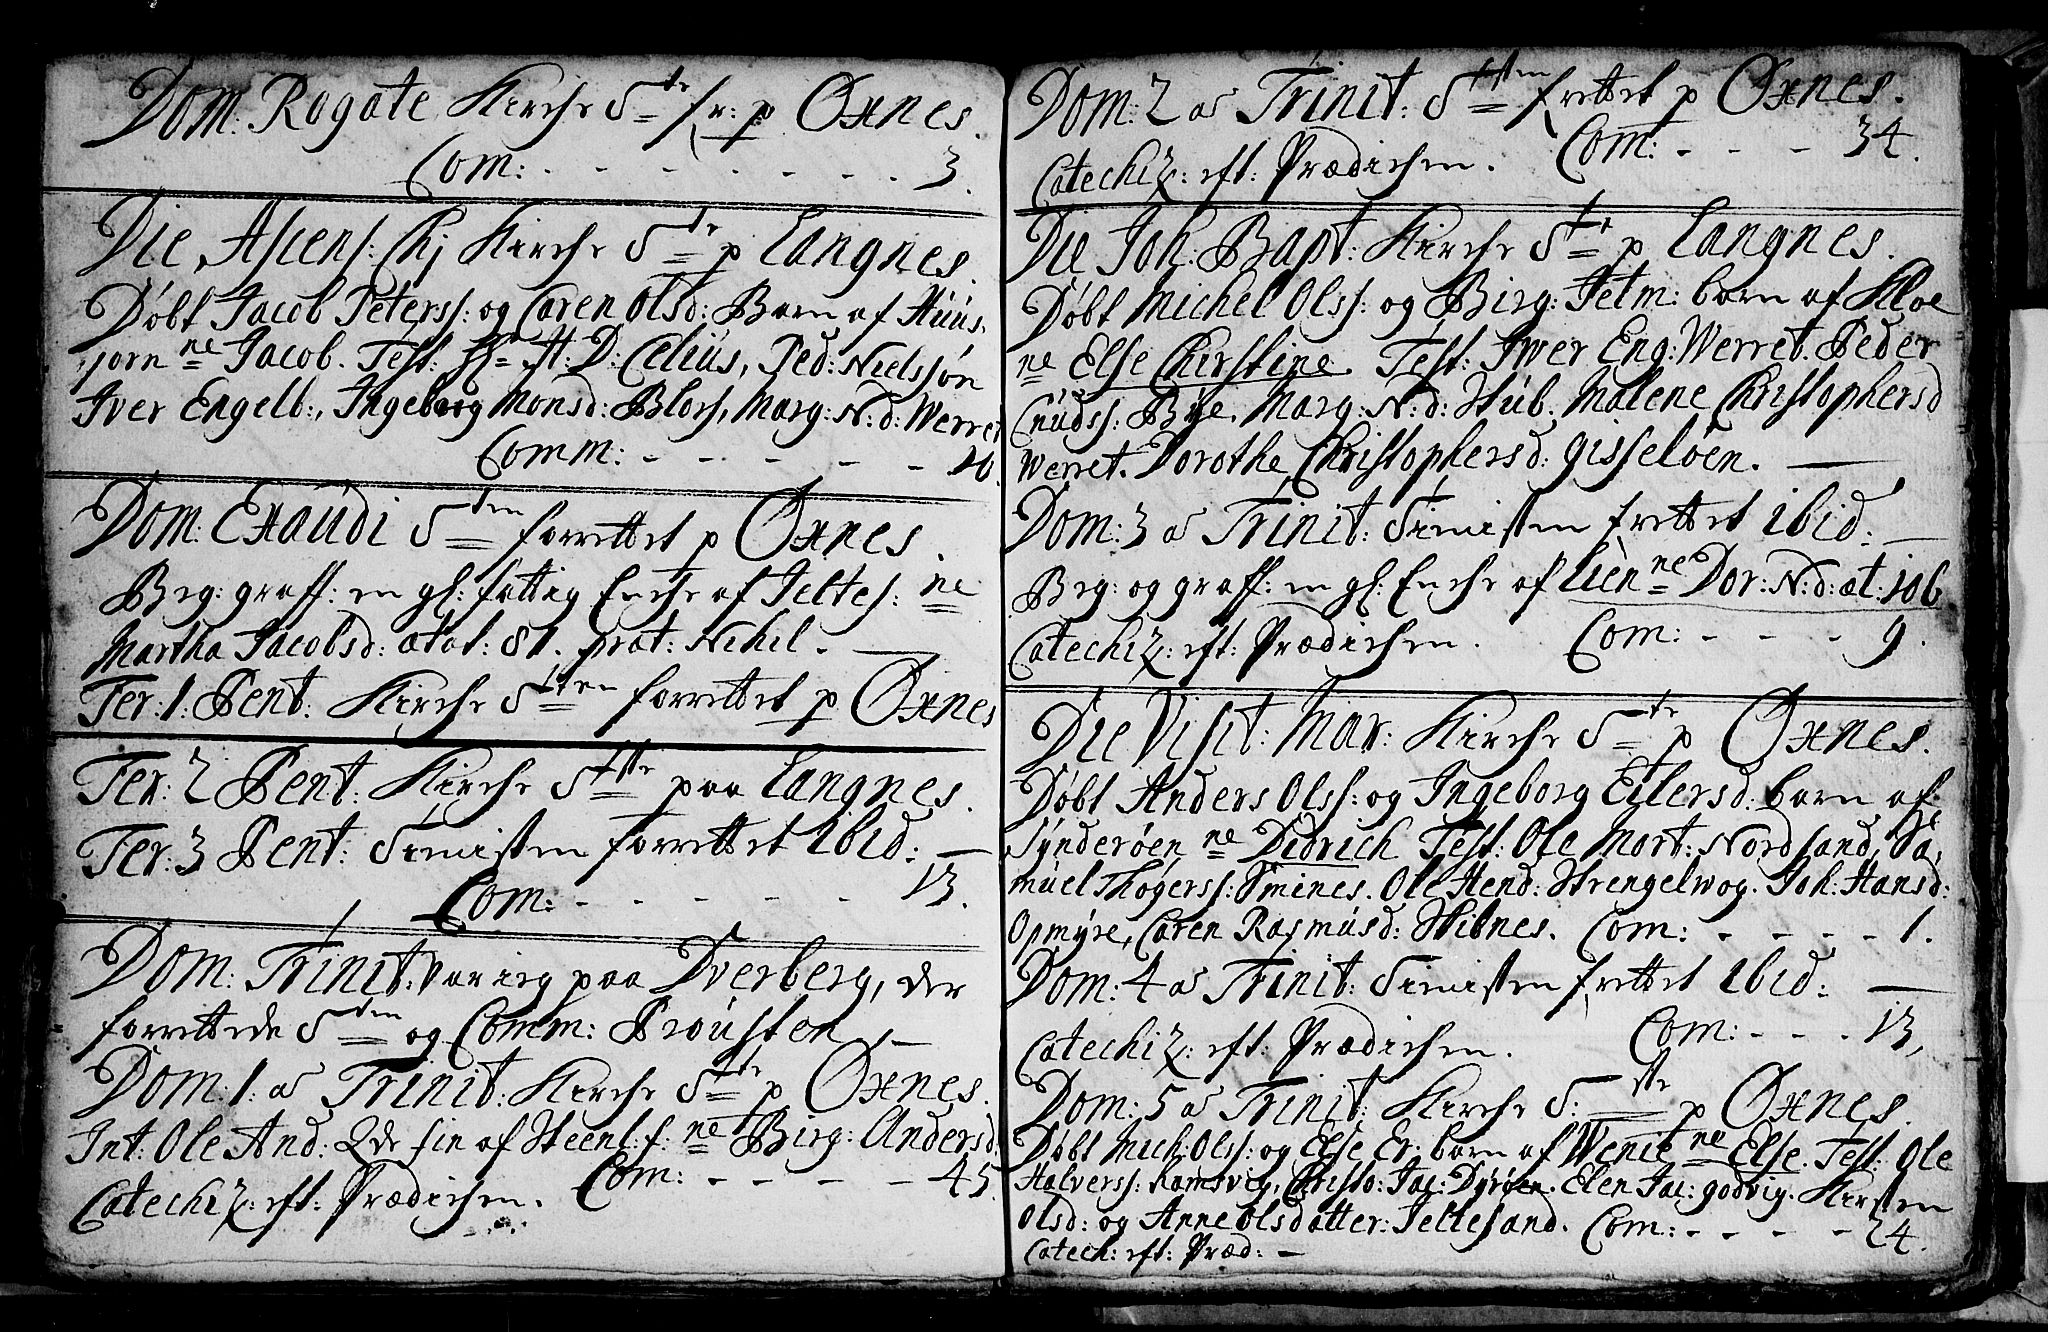 Dom: Rogate, Kirche Ste fr: p Øxnes.
Com: - - - - - - - 3.
Die Ascens: Chj Kirche Ste p Langnes.
Døbt Jacob Peterss: og Caren Olsd: Barn af Huus,
jorn ne Jacob. Test: Hr H: D: Celius, Ped: Nielssøn
Iver Engelb:, Ingeborg Monsd: Blors, Marg: N: d: Werret
Comm: - - - - - 20.
Dom: Exaudi Sten forrettet p Øxnes.
Beg: graff: en gl: fattig Enche af Jeltes: ne
Martha Jacobsd: ætat: 81. præt: Nihil. —
Fer: 1: Pent: Kirche Sten forrettet p Øxnes
Fer: 2 Pent: Kirche Ste paa Langnes.
Fer: 3 Pent: Tienisten forrettet ibid: —
Com: - - - - - 13.
Dom: Trinit: var ieg paa Dverberg, der
forrettede Sten og Comm: Prousten —
Dom: 1: a Trinit: Kirche Ste p Øxnes.
Int: Ole And: Qde sin af Steenl: f: ne Birg: Andersd.
Catechiz: eft: Prædichen. Com: - - - - 45.
Dom: 2 a Trinit: Sten frettet p Øxnes.
Catechiz: eft: Prædichen. Com: - - - 34.
Die Joh: Bapt: Kirche Ste p Langnes.
Døbt Michel Olss: og Birg: Jelm: barn af Kloe
ne Else Chirstine. Test: Iwer Eng: Werret. Peder
Cnudss: Bye, Marg: N: d: Stub. Malene Christophersd
Werret. Dorothe Christophersd: Gisseløen. —
Dom: 3 a Trinit: Tienisten frettet ibid: —
Beg: og graff: en gl: Enche af Lien ne Dor: N: d: æt: 106
Catechiz: eft: Prædichen. Com: - - - 9.
Die Visit: Mar: Kirche Ste p Øxnes.
Døbt Anders Olss: og Ingeborg Eilersd: barn af
Synderøen ne Didrich Test: Ole Mort: Nordsand, Sa,
muel Thøgerss: Smines. Ole Hend: Strengelwog. Joh: Hansd:
Opmyre, Caren Rasmusd: Skibnes. Com: - - - - 1.
Dom: 4 a Trinit: Tienisten frettet ibid: —
Catechiz: eft: Prædichen. Com: - - - 13,
Dom: 5 a Trinit: Kirche S: ste p Øxnes.
Døbt Mich: Olss: og Else Er: barn af Wenie ne Else. Test: Ole
Halverss: Ramsvig, Christo: Jac: Dyrøen. Elen Jac: Godvig. Kirsten
Olsd: og Anne Olsdatter: Jeltesand. Com: - - - - 24.
Catech: eft: Præd: —